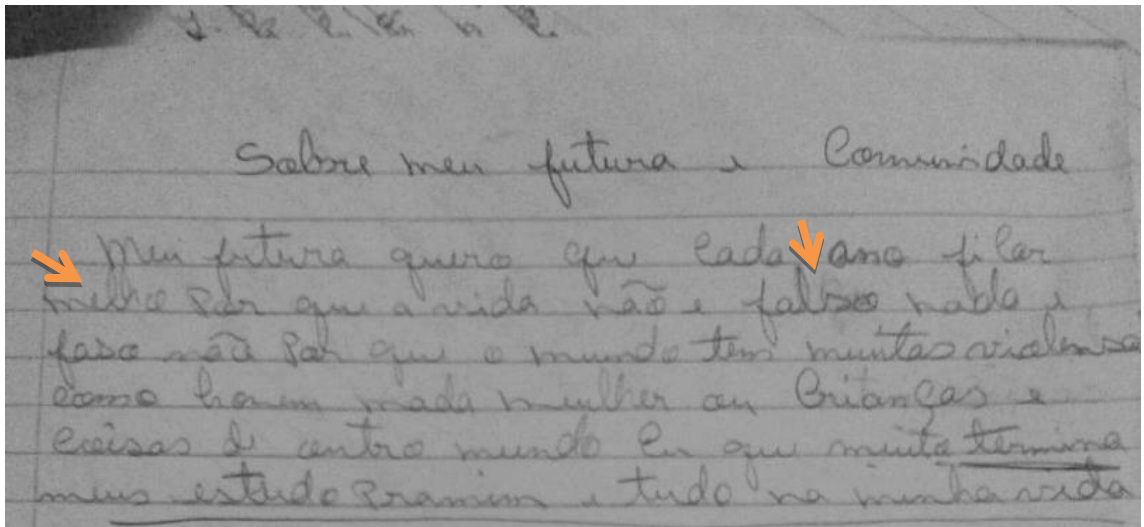 Sobre meu futura e Comunidade
Meu futura quero que cada ano filar
melho por que a vida não e falso nada e
faso não por que o mundo tem muntas violensa
como homem mada mulher ou Crianças e
coisas de outro mundo Eu que muita termina
meus estudo pramim e tudo na minha vida